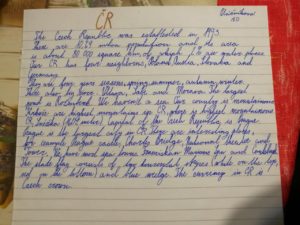 ČR
The Czech Republic was established in 1993
there are 10,64 milion population and its area
is about 80 000 square km, of which 2% are water places
Our ČR has four neighbors, Poland, Austria, Slovakia and
Germany.
They are four years seasons, spring, summer, autumn, winter.
There also big rivers: Vltava, Labe and Morava. The largest
pond is Rožmberk. We haven't a sea. Our country is mountainous
highest mountains in ČR, where is highest mountain
is Sněžka (1602 meter). Capital of the Czech Republic is Prague.
Prague is the largest city in ČR. There are interesting places,
for example Prague castle, Charles Bridge, National theatre and
We have most spa towns Mariánské Lázně and
The state flag consists of two horizontal stripes (white on the top,
red on the bottom) and blue wedge. The currency in ČR is
Czech crown.